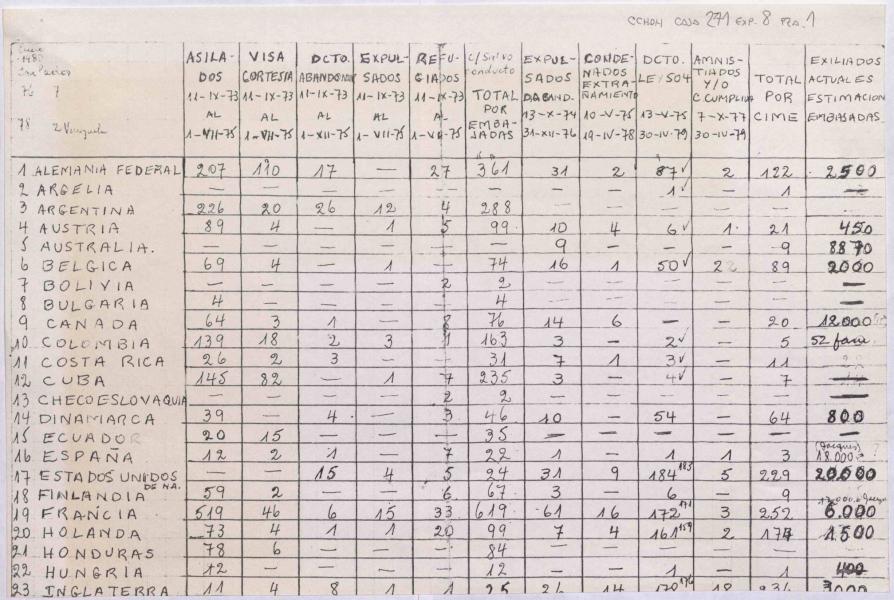 CCHDH CAJA 271 EXP. 8 PZA. 1
Enero
1980
76 7
78 2 Venezuela
ASILADOS 11-IX-73 AL 1-VII-75 | VISA CORTESIA 11-IX-73 AL 1-VII-75 | DCTO. ABANDONO 11-IX-73 AL 1-XII-75 | EXPULSADOS 11-IX-73 AL 1-VII-75 | REFUGIADOS 11-IX-73 AL | c/Salvo conducto TOTAL POR EMBAJADAS | EXPULSADOS 13-X-74 31-XII-76 | CONDENADOS EXTRAÑAMIENTO 10-V-75 19-IV-78 | DCTO. LEY 504 13-V-75 30-IV-79 | AMNISTIADOS Y/O C. CUMPLIDA 7-X-77 30-IV-79 | TOTAL POR CIME | EXILIADOS ACTUALES ESTIMACION EMBASADAS.
1 ALEMANIA FEDERAL 207 110 17 — 27 361 31 2 87✓ 2 122 2500
2 ARGELIA — — — — — — — — 1✓ — 1 —
3 ARGENTINA 226 20 26 12 4 288 — — — — — —
4 AUSTRIA 89 4 — 1 5 99 10 4 6✓ 1 21 450
5 AUSTRALIA. — — — — — — 9 — — — 9 8870
6 BELGICA 69 4 — 1 — 74 16 1 50✓ 22 89 2000
7 BOLIVIA — — — — 2 2 — — — — — —
8 BULGARIA 4 — — — — 4 — — — — — —
9 CANADA 64 3 1 — 8 76 14 6 — — 20 12.000
10 COLOMBIA 139 18 2 3 1 163 3 — 2✓ — 5 52 fam.
11 COSTA RICA 26 2 3 — — 31 7 1 3✓ — 11
12 CUBA 145 82 — 1 7 235 3 — 4✓ — 7
13 CHECOESLOVAQUIA — — — — 2 2 — — — — — —
14 DINAMARCA 39 — 4 — 3 46 10 — 54 — 64 800
15 ECUADOR 20 15 — — — 35 — — — — — —
16 ESPAÑA 12 2 1 — 7 22 1 — 1 1 3 18.000 ?
17 ESTADOS UNIDOS DE NA. — — 15 4 5 24 31 9 184 183 5 229 20.000
18 FINLANDIA 59 2 — — 6 67 3 — 6 — 9
19 FRANCIA 519 46 6 15 33 619 61 16 172 171 3 252 6.000
20 HOLANDA 73 4 1 1 20 99 7 4 161 159 2 174 1.500
21 HONDURAS 78 6 — — — 84 — — — — — —
22 HUNGRIA 12 — — — — 12 — — 1 — 1 400
23 INGLATERRA 11 4 8 1 1 25 26 14 170 176 18 3000